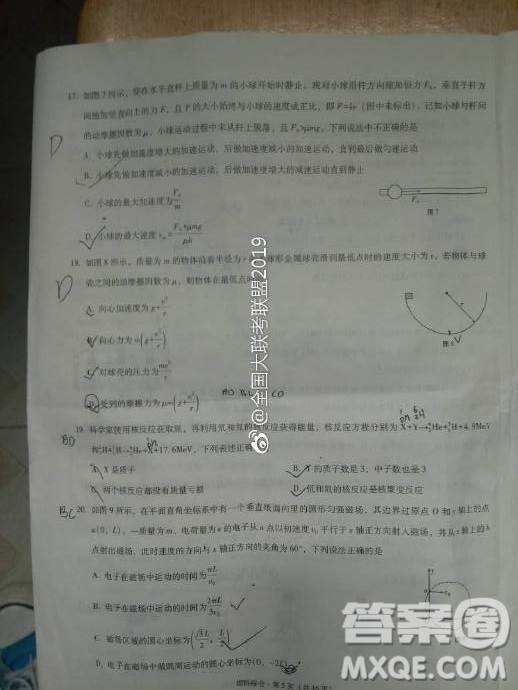 17. 如图7所示，穿在水平直杆上质量为m的小球开始时静止。现对小球沿杆方向施加恒力F₀，垂直于杆方
向施加竖直向上的力F，且F的大小始终与小球的速度成正比，即F=kv（图中未标出）。已知小球与杆间
的动摩擦因数为μ，小球运动过程中未从杆上脱落，且F₀>μmg。下列说法中不正确的是
D
A. 小球先做加速度增大的加速运动，后做加速度减小的加速运动，直到最后做匀速运动
B. 小球先做加速度减小的加速运动，后做加速度增大的减速运动直到静止
C. 小球的最大加速度为F₀/m
D. 小球的最大速度vₘ=(F₀+μmg)/μk
F₀
图7
18. 如图8所示，质量为m的物体沿着半径为r的 球形金属球壳滑到最低点时的速度大小为v，若物体与球
壳之间的动摩擦因数为μ，则物体在最低点时
D
A. 向心加速度为g+v²/r
B. 向心力为m(g+v²/r)
C. 对球壳的压力为mv²/r
D. 受到的摩擦力为μm(g+v²/r)
r
图8
V
CD
19. 科学家使用核反应获取氚，再利用氘和氚的核反应获得能量，核反应方程分别为X+Y→⁴₂He+³₁H+4.9MeV
和²₁H+³₁H→⁴₂He+X+17.6MeV，下列表述正确
BD
A. X是质子
B. Y的质子数是3，中子数也是3
C. 两个核反应都没有质量亏损
D. 氘和氚的核反应是核聚变反应
20. 如图9所示，在平面直角坐标系中有一个垂直纸面向里的圆形匀强磁场，其边界过原点O和y轴上的点
BC
a(0，L)。一质量为m、电荷量为e的电子从a点以初速度v₀平行于x轴正方向射入磁场，并从x轴上的b
点射出磁场，此时速度的方向与x轴正方向的夹角为60°。下列说法正确的是
A. 电子在磁场中运动的时间为πL/v₀
B. 电子在磁场中运动的时间为2πL/3v₀
C. 磁场区域的圆心坐标为(√3L/2，L/2)
D. 电子在磁场中做圆周运动的圆心坐标为(0，-2L)
理科综合·第5页
@全国大联考联盟2019
答案圈
MXQE.COM